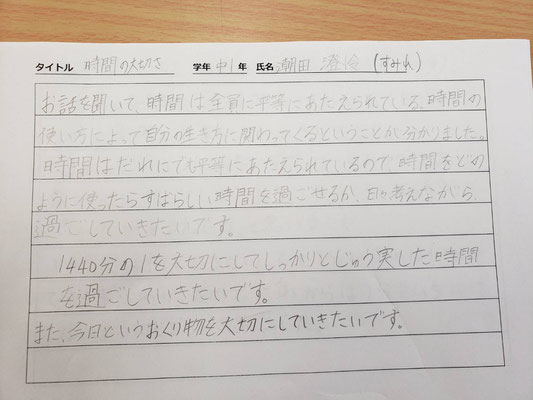 タイトル 時間の大切さ 学年 中1年 氏名 潮田 澄怜 (すみれ)
お話を聞いて、時間は全員に平等にあたえられている、時間の
使い方によって自分の生き方に関わってくるということが分かりました。
時間はだれにでも平等にあたえられているので、時間をどの
ように使ったらすばらしい時間を過ごせるか、日々考えながら、
過ごしていきたいです。
1440分の1を大切にしてしっかりとじゅう実した時間
を過ごしていきたいです。
また、今日というおくり物を大切にしていきたいです。